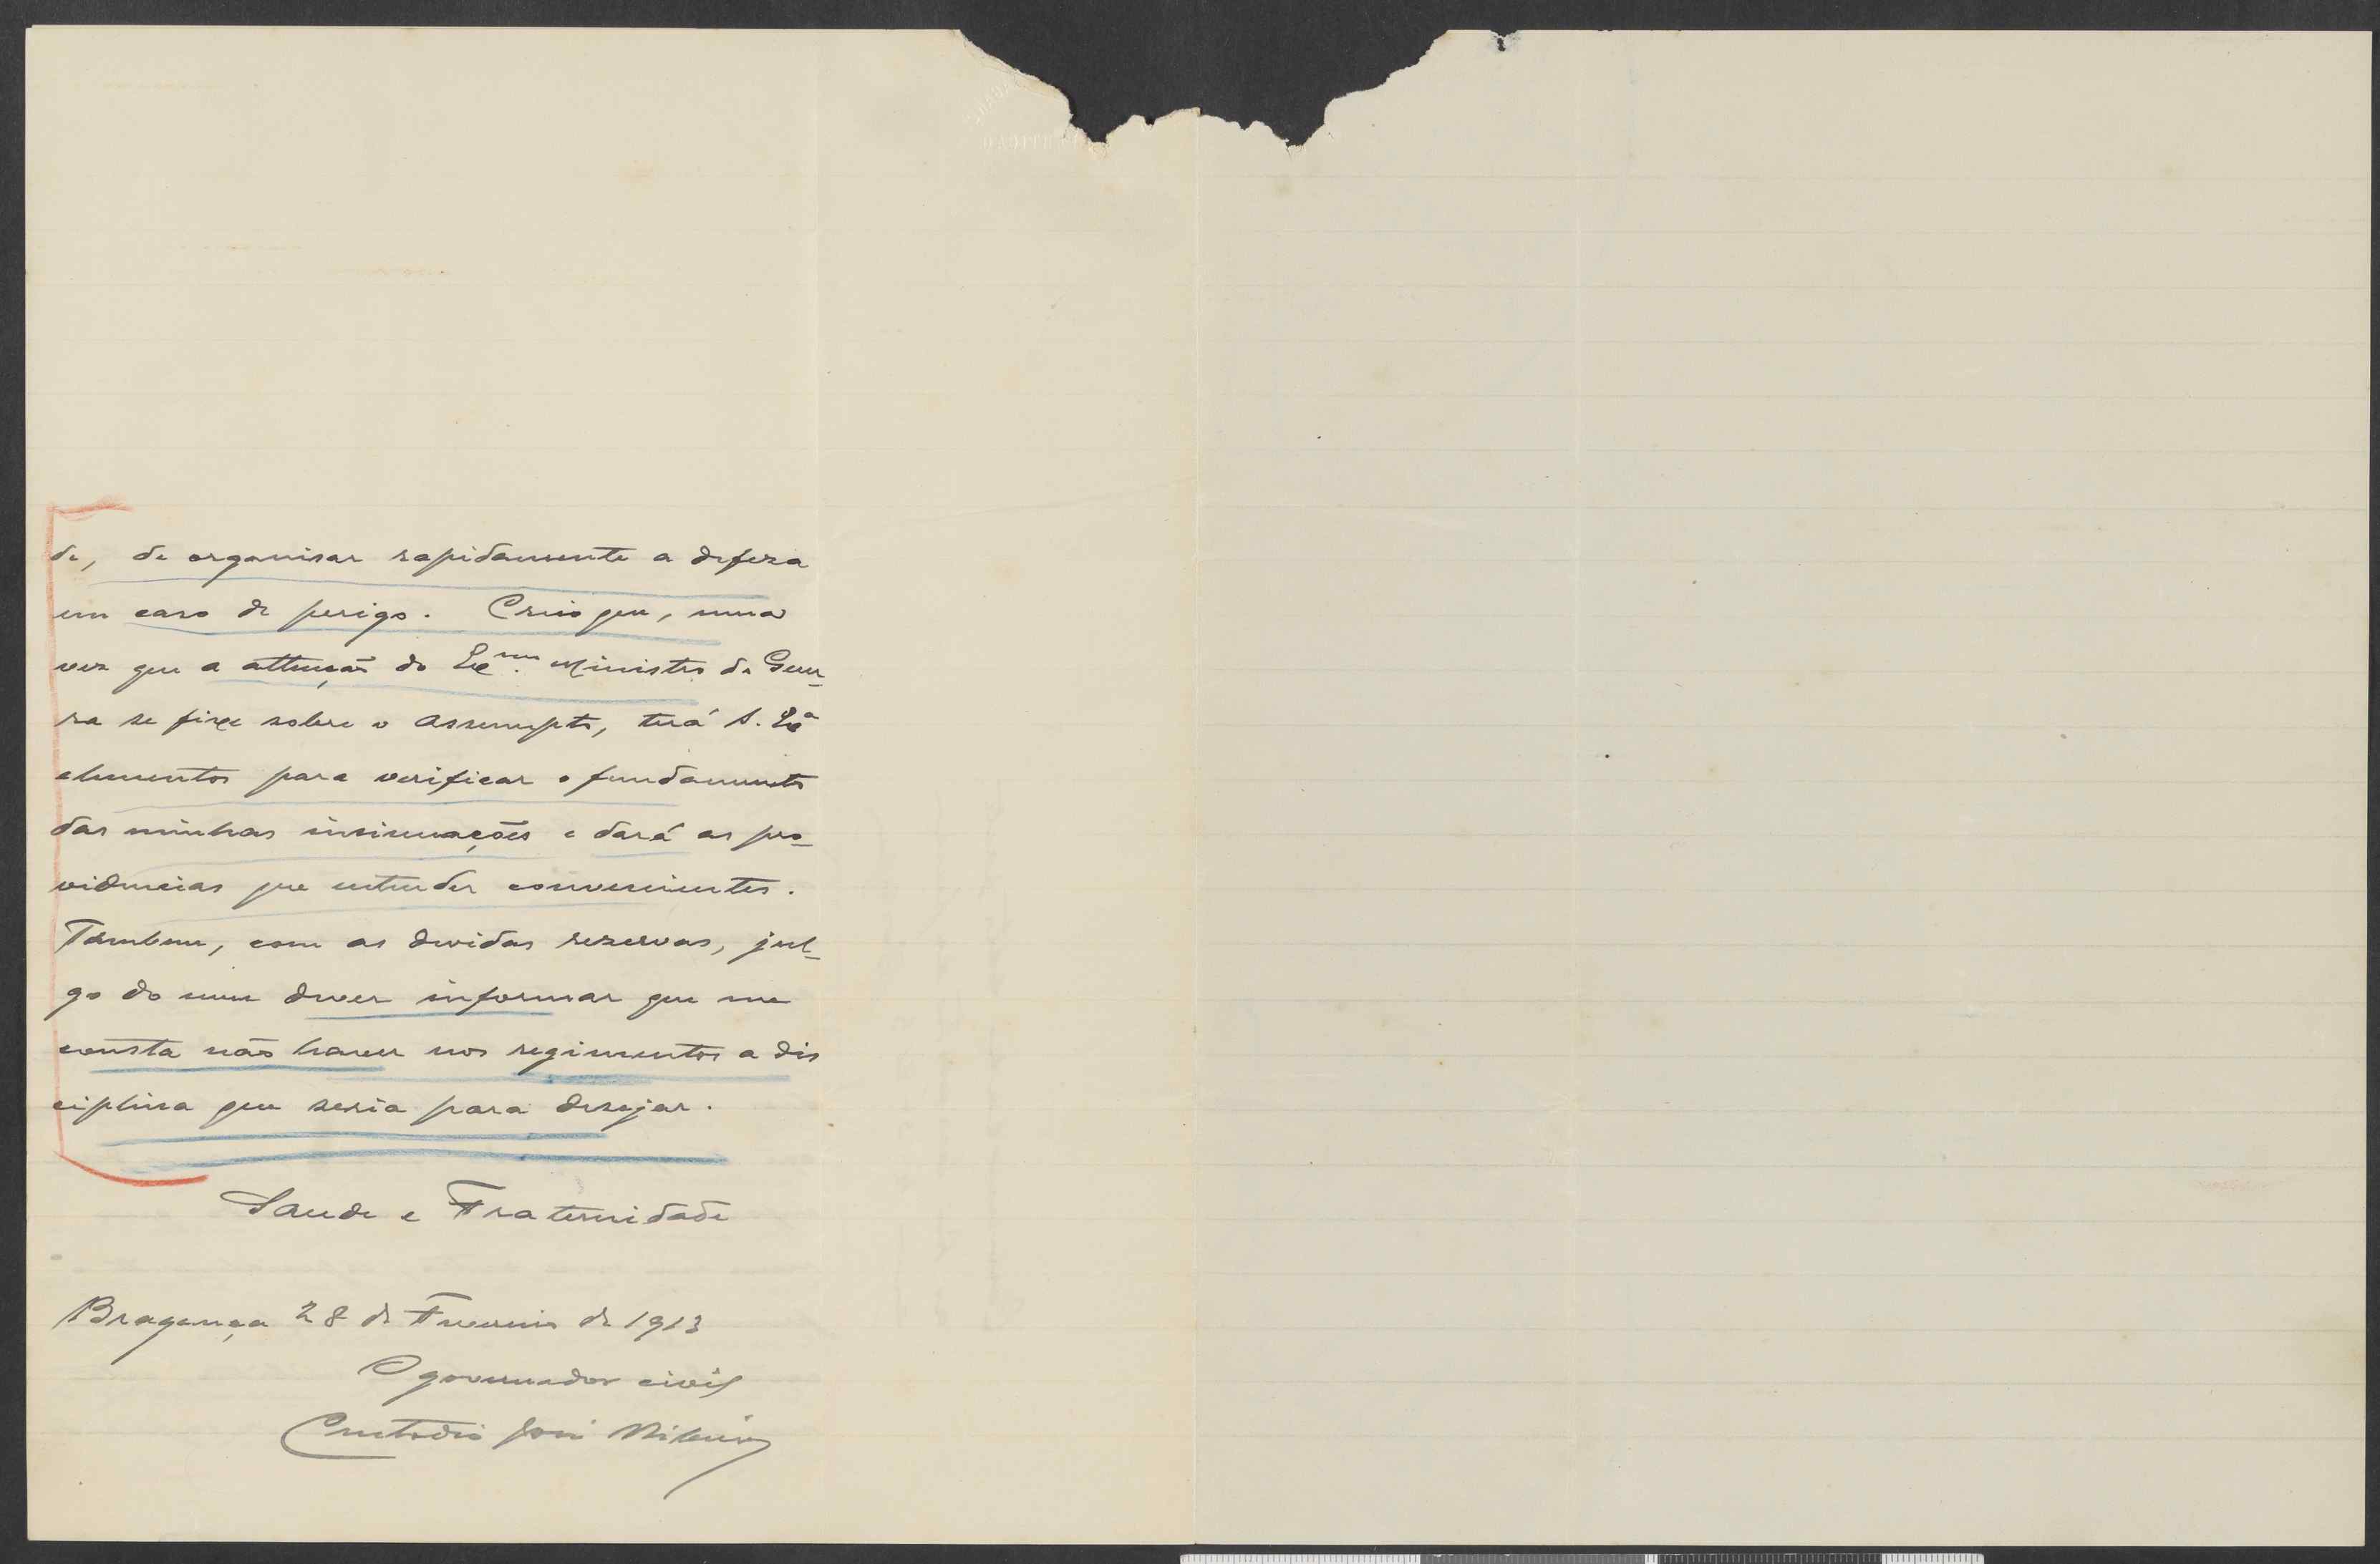 de, de organisar rapidamente a defeza
em caso de perigo. Creio que, uma
vez que a attenção do Exmo. Ministro da Guer-
ra se fixe sobre o assumpto, terá S. Exa
elementos para verificar o fundamento
das minhas insinuações e dará as pro-
videncias que entender convenientes.
Tambem, com as devidas rezervas, jul-
go do meu dever informar que me
consta não haver nos regimentos a dis
ciplina que seria para desejar.
Saude e Fraternidade
Bragança 28 de Fevereiro de 1913
O governador civil
Custodio José Ribeiro